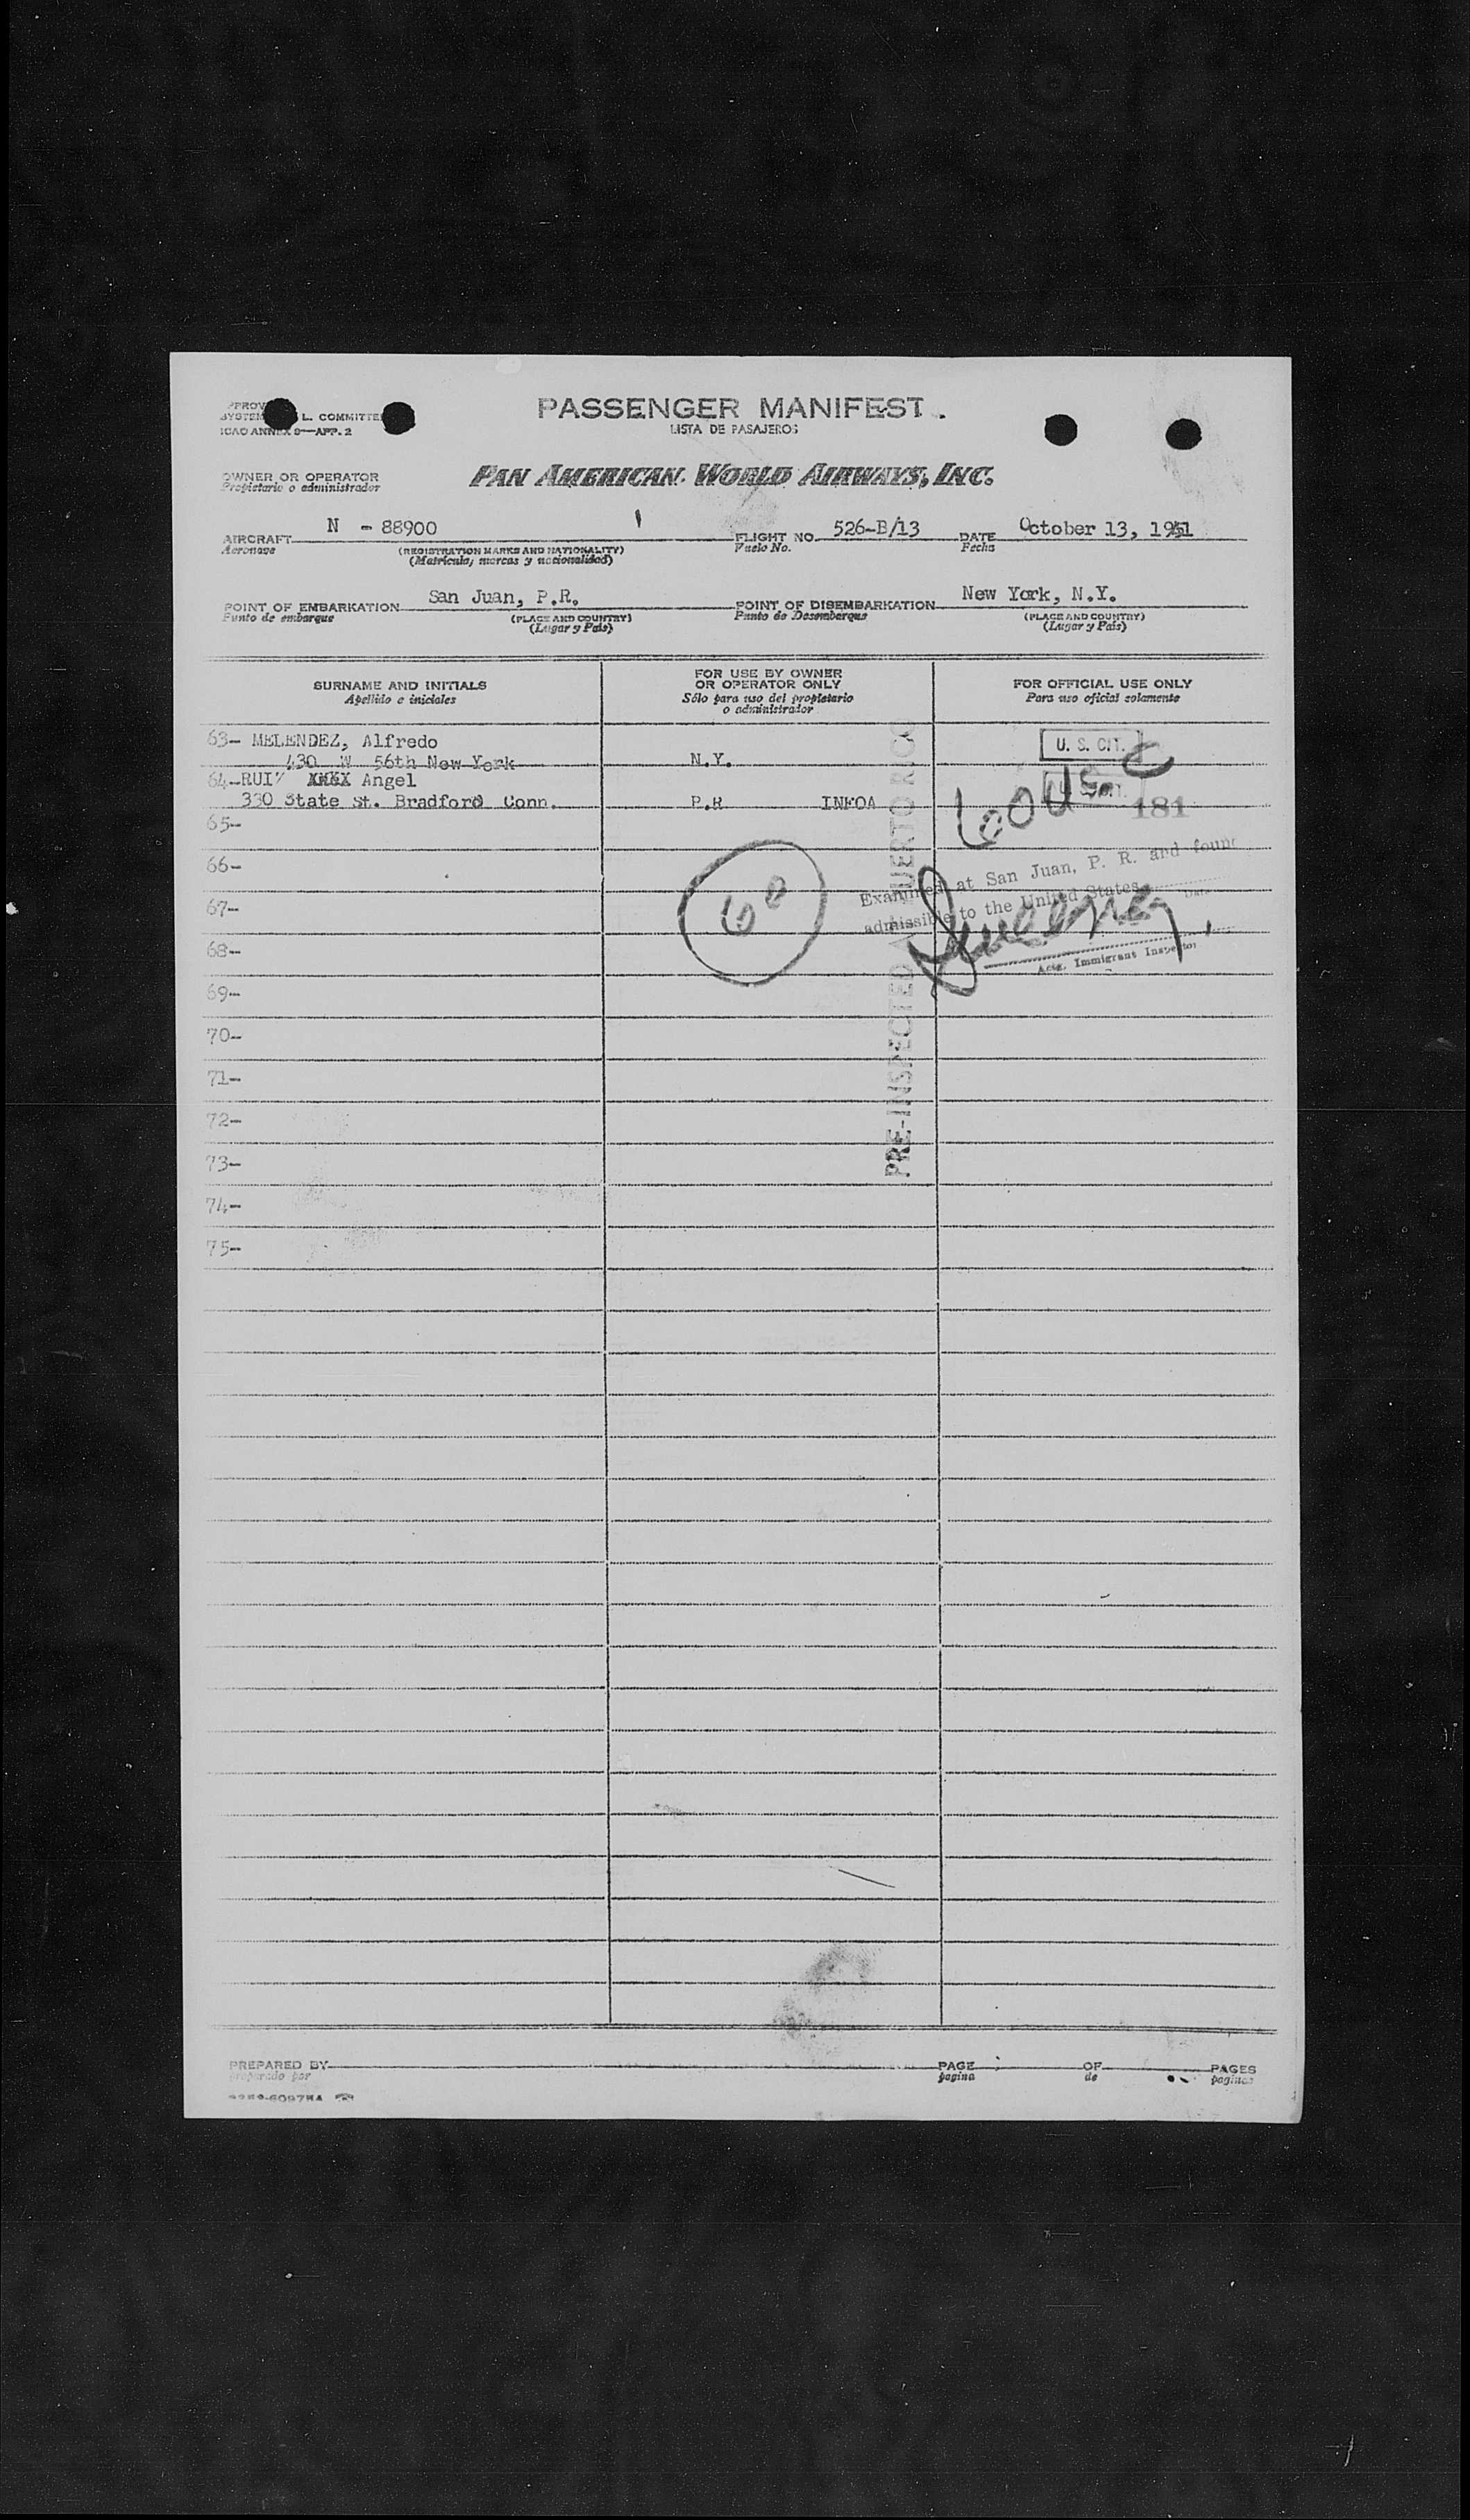 PASSENGER MANIFEST.
LISTA DE PASAJEROS
L. COMMITTEE
ICAO ANNEX 9—APP. 2
OWNER OR OPERATOR
Propietario o administrador
PAN AMERICAN WORLD AIRWAYS, INC.
AIRCRAFT N - 88900 FLIGHT NO. 526-B/13 DATE October 13, 1951
Aeronave (REGISTRATION MARKS AND NATIONALITY) Vuelo No. Fecha
(Matrícula, marcas y nacionalidad)
POINT OF EMBARKATION San Juan, P.R. POINT OF DISEMBARKATION New York, N.Y.
Punto de embarque (PLACE AND COUNTRY) Punto de Desembarque (PLACE AND COUNTRY)
(Lugar y País) (Lugar y País)
SURNAME AND INITIALS FOR USE BY OWNER OR OPERATOR ONLY FOR OFFICIAL USE ONLY
Apellido e iniciales Sólo para uso del propietario o administrador Para uso oficial solamente
63- MELENDEZ, Alfredo U. S. CIT.
430 W 56th New York N.Y.
64-RUIZ Angel
330 State St. Bradford Conn. P.R INFOA 181
60 US C
65-
66-
60
Examined at San Juan, P. R. and found
admissible to the United States
67-
68-
Actg. Immigrant Inspector
69-
70-
71-
72-
73-
74-
75-
PRE-INSPECTED PUERTO RICO
PREPARED BY PAGE OF PAGES
preparado por pagina de paginas